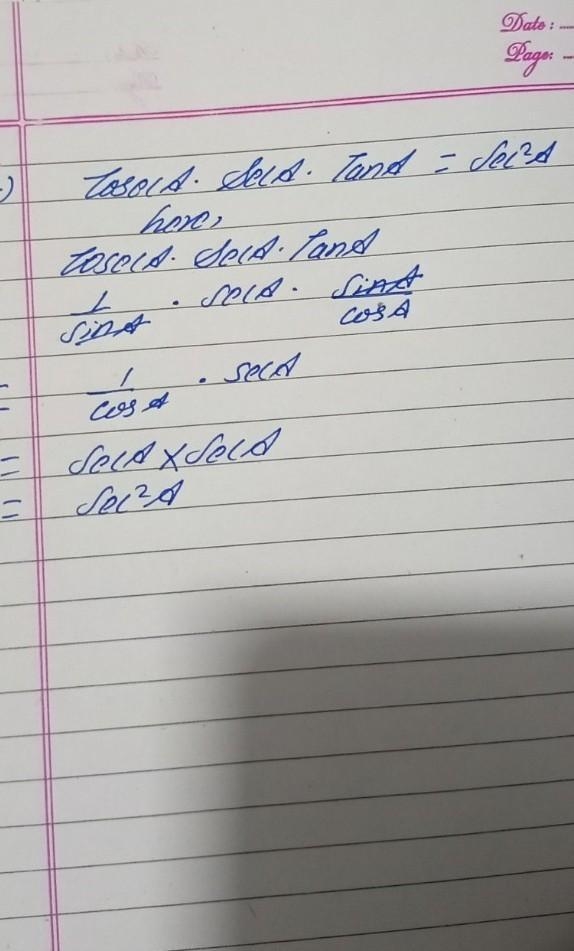 Date: ....
Page: ....
) CosecA. SecA. TanA = Sec²A
here,
CosecA. SecA. TanA
1/sinA . secA. sinA/cosA
= 1/cosA . secA
= SecA × SecA
= Sec²A